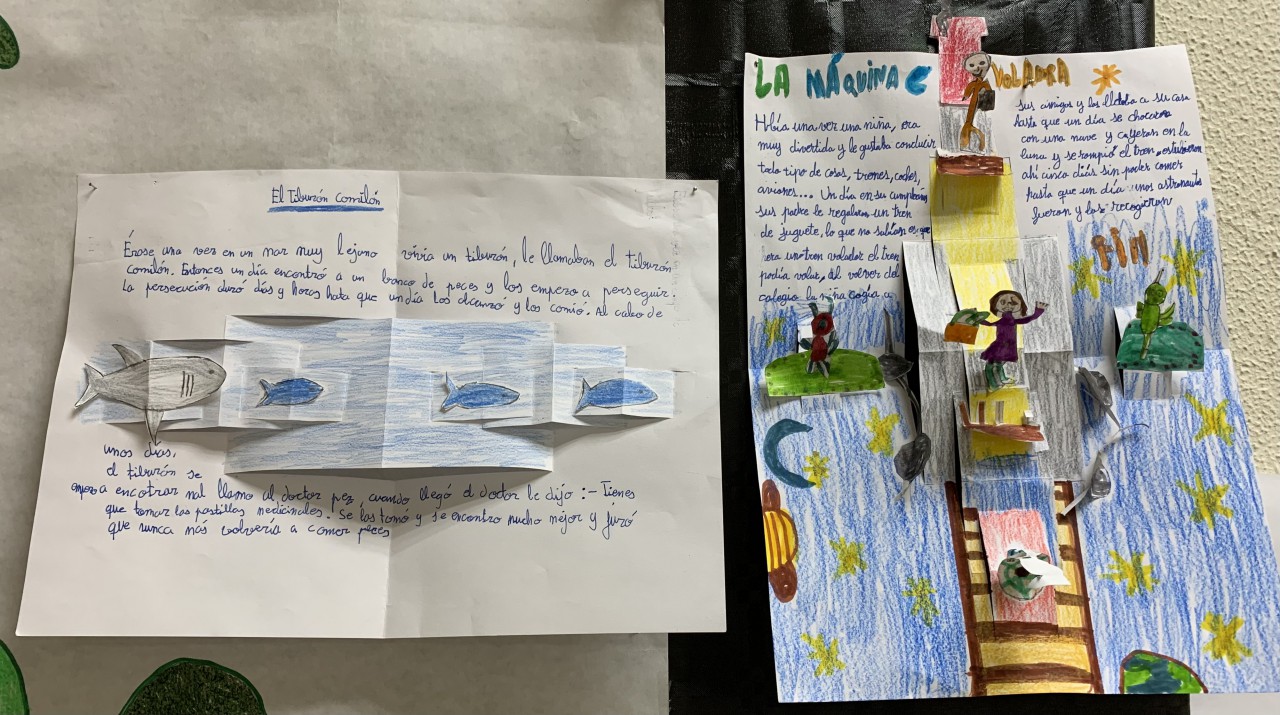 El Tiburón comilón
Érase una vez en un mar muy lejano vivia un tiburón, le llamaban el tiburón
comilón. Entonces un día encontró a un banco de peces y los empezo a perseguir.
La persecución duró días y horas hata que un día los alcanzó y los comió. Al cabo de
unos días,
el tiburón se
empezo a encotrar mal llamo al doctor pez, cuando llegó el doctor le dijo :- Tienes
que tomar las pastillas medicinales. Se las tomó y se encontro mucho mejor y juró
que nunca más volvería a comer peces
LA MÁQUINA VOLADRA
Había una vez una niña, era
muy divertida y le gustaba conducir
todo tipo de cosas, trenes, coches,
aviones.... Un día en su cumpleaños
sus padre le regalaron un tren
de juguete, lo que no sabían es que
era un tren volador el tren
podía volar, al volver del
colegio la niña cogía a
sus amigos y los llebaba a su casa
hasta que un día se chocaron
con una nave y cayeron en la
luna y se rompió el tren, estuvieron
ahí cinco días sin poder comer
hasta que un día unos astronautas
fueron y los recogieron
FIN